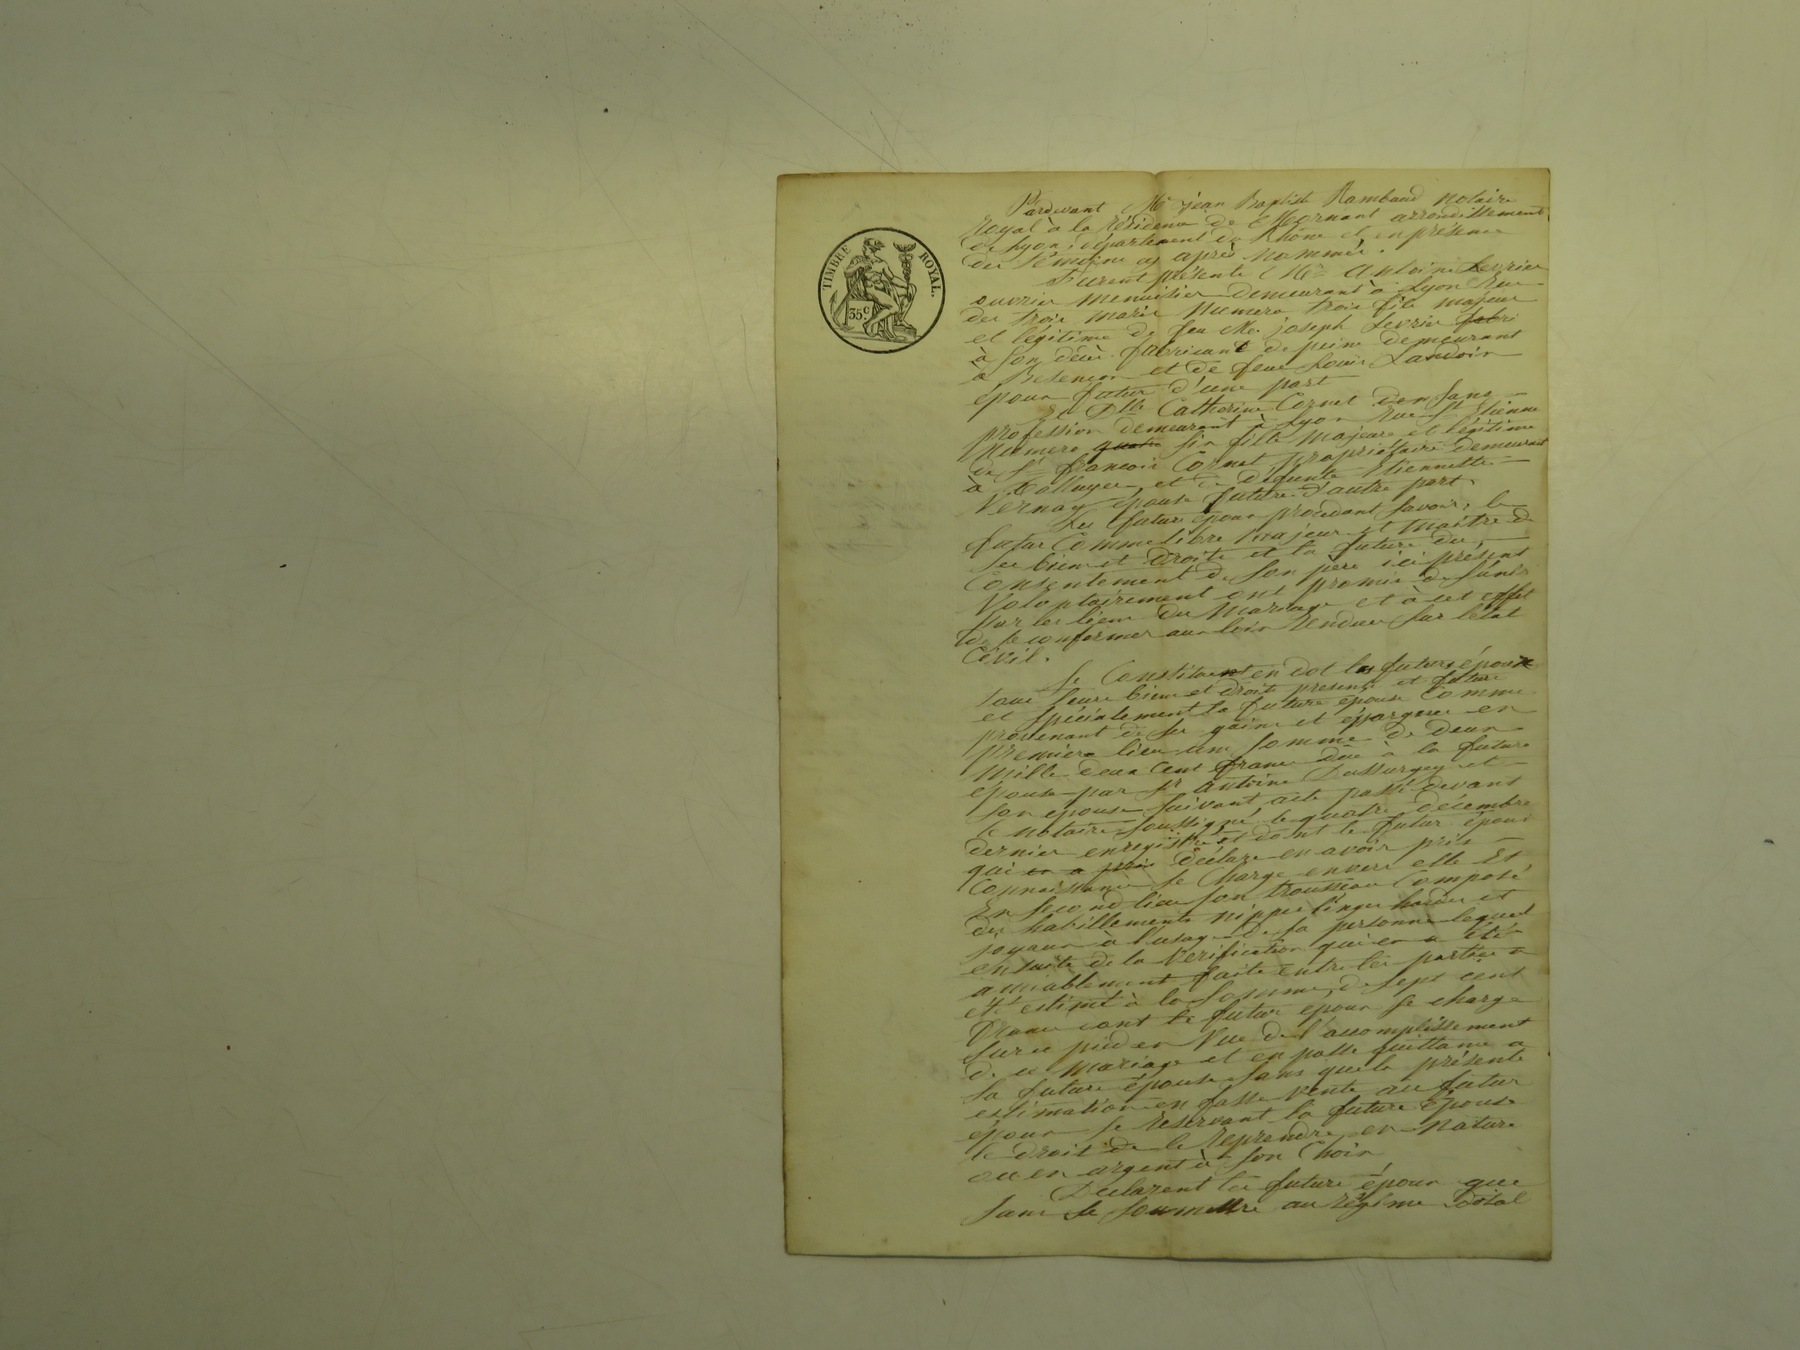 TIMBRE ROYAL.
35c.
Pardevant Me jean Baptiste Rambaud notaire
Royal à la Résidence de Mornant arrondissement
de Lyon, département du Rhône et en présence
des témoins cy après nommés.
Furent présents Mr antoine Levrier
ouvrier menuisier demeurant à Lyon Rue
des trois maries Numero trois fils majeur
et légitime de feu Mr joseph Levrier fabri
à son décès fabricant de peine demeurant
à Besençon et de feue Louise Landoin
époux futur d'une part
Et Dlle Catherine Cornet demeurant sans
profession demeurant à Lyon Rue St Etienne
Numero quatre six fille majeure et légitime
de Sr francois Cornet propriétaire demeurant
à Talluyer et de défunte Etiennette
Vernay épouse future d'autre part.
Les futurs époux procédant savoir, le
futur Comme libre majeur et maître de
ses biens et droits et la future du
Consentement de son père ici présent
Volontairement ont promis de s'unir
par les liens du mariage et à cet effet
de se conformer aux lois rendues sur l'état
Civil.
Se Constituent en dot les futurs époux
tous leurs biens et droits presents et futurs
et spécialement la future épouse Comme
provenant de ses gains et épargnes en
premiere lieu une somme de deux
mille deux cent francs düe à la future
épouse par Sr antoine Dussurgey et
son épouse suivant acte passé devant
le notaire soussigné le quatre décembre
dernier enregistré et dont le futur époux
qui en a pris déclare en avoir pris
Connaissance se charge envers elle Et
En second lieu son trousseau Composé
des habillements nippes linges hardes et
joyaux à l'usage de sa personne lequel
ensuite de la Vérification qui en a été
amiablement faite entre les parties a
été estimé à la somme de sept cent
francs dont le futur époux se charge
sur ce pied en Vue de l'accomplissement
de ce mariage et en passe quittance a
sa future épouse sans que la présente
estimation en fasse vente au futur
époux se réservant la future épouse
le droit de le Reprendre en nature
ou en argent à son Choix
Déclarent les futurs époux que
sans se soumettre au régime dotal